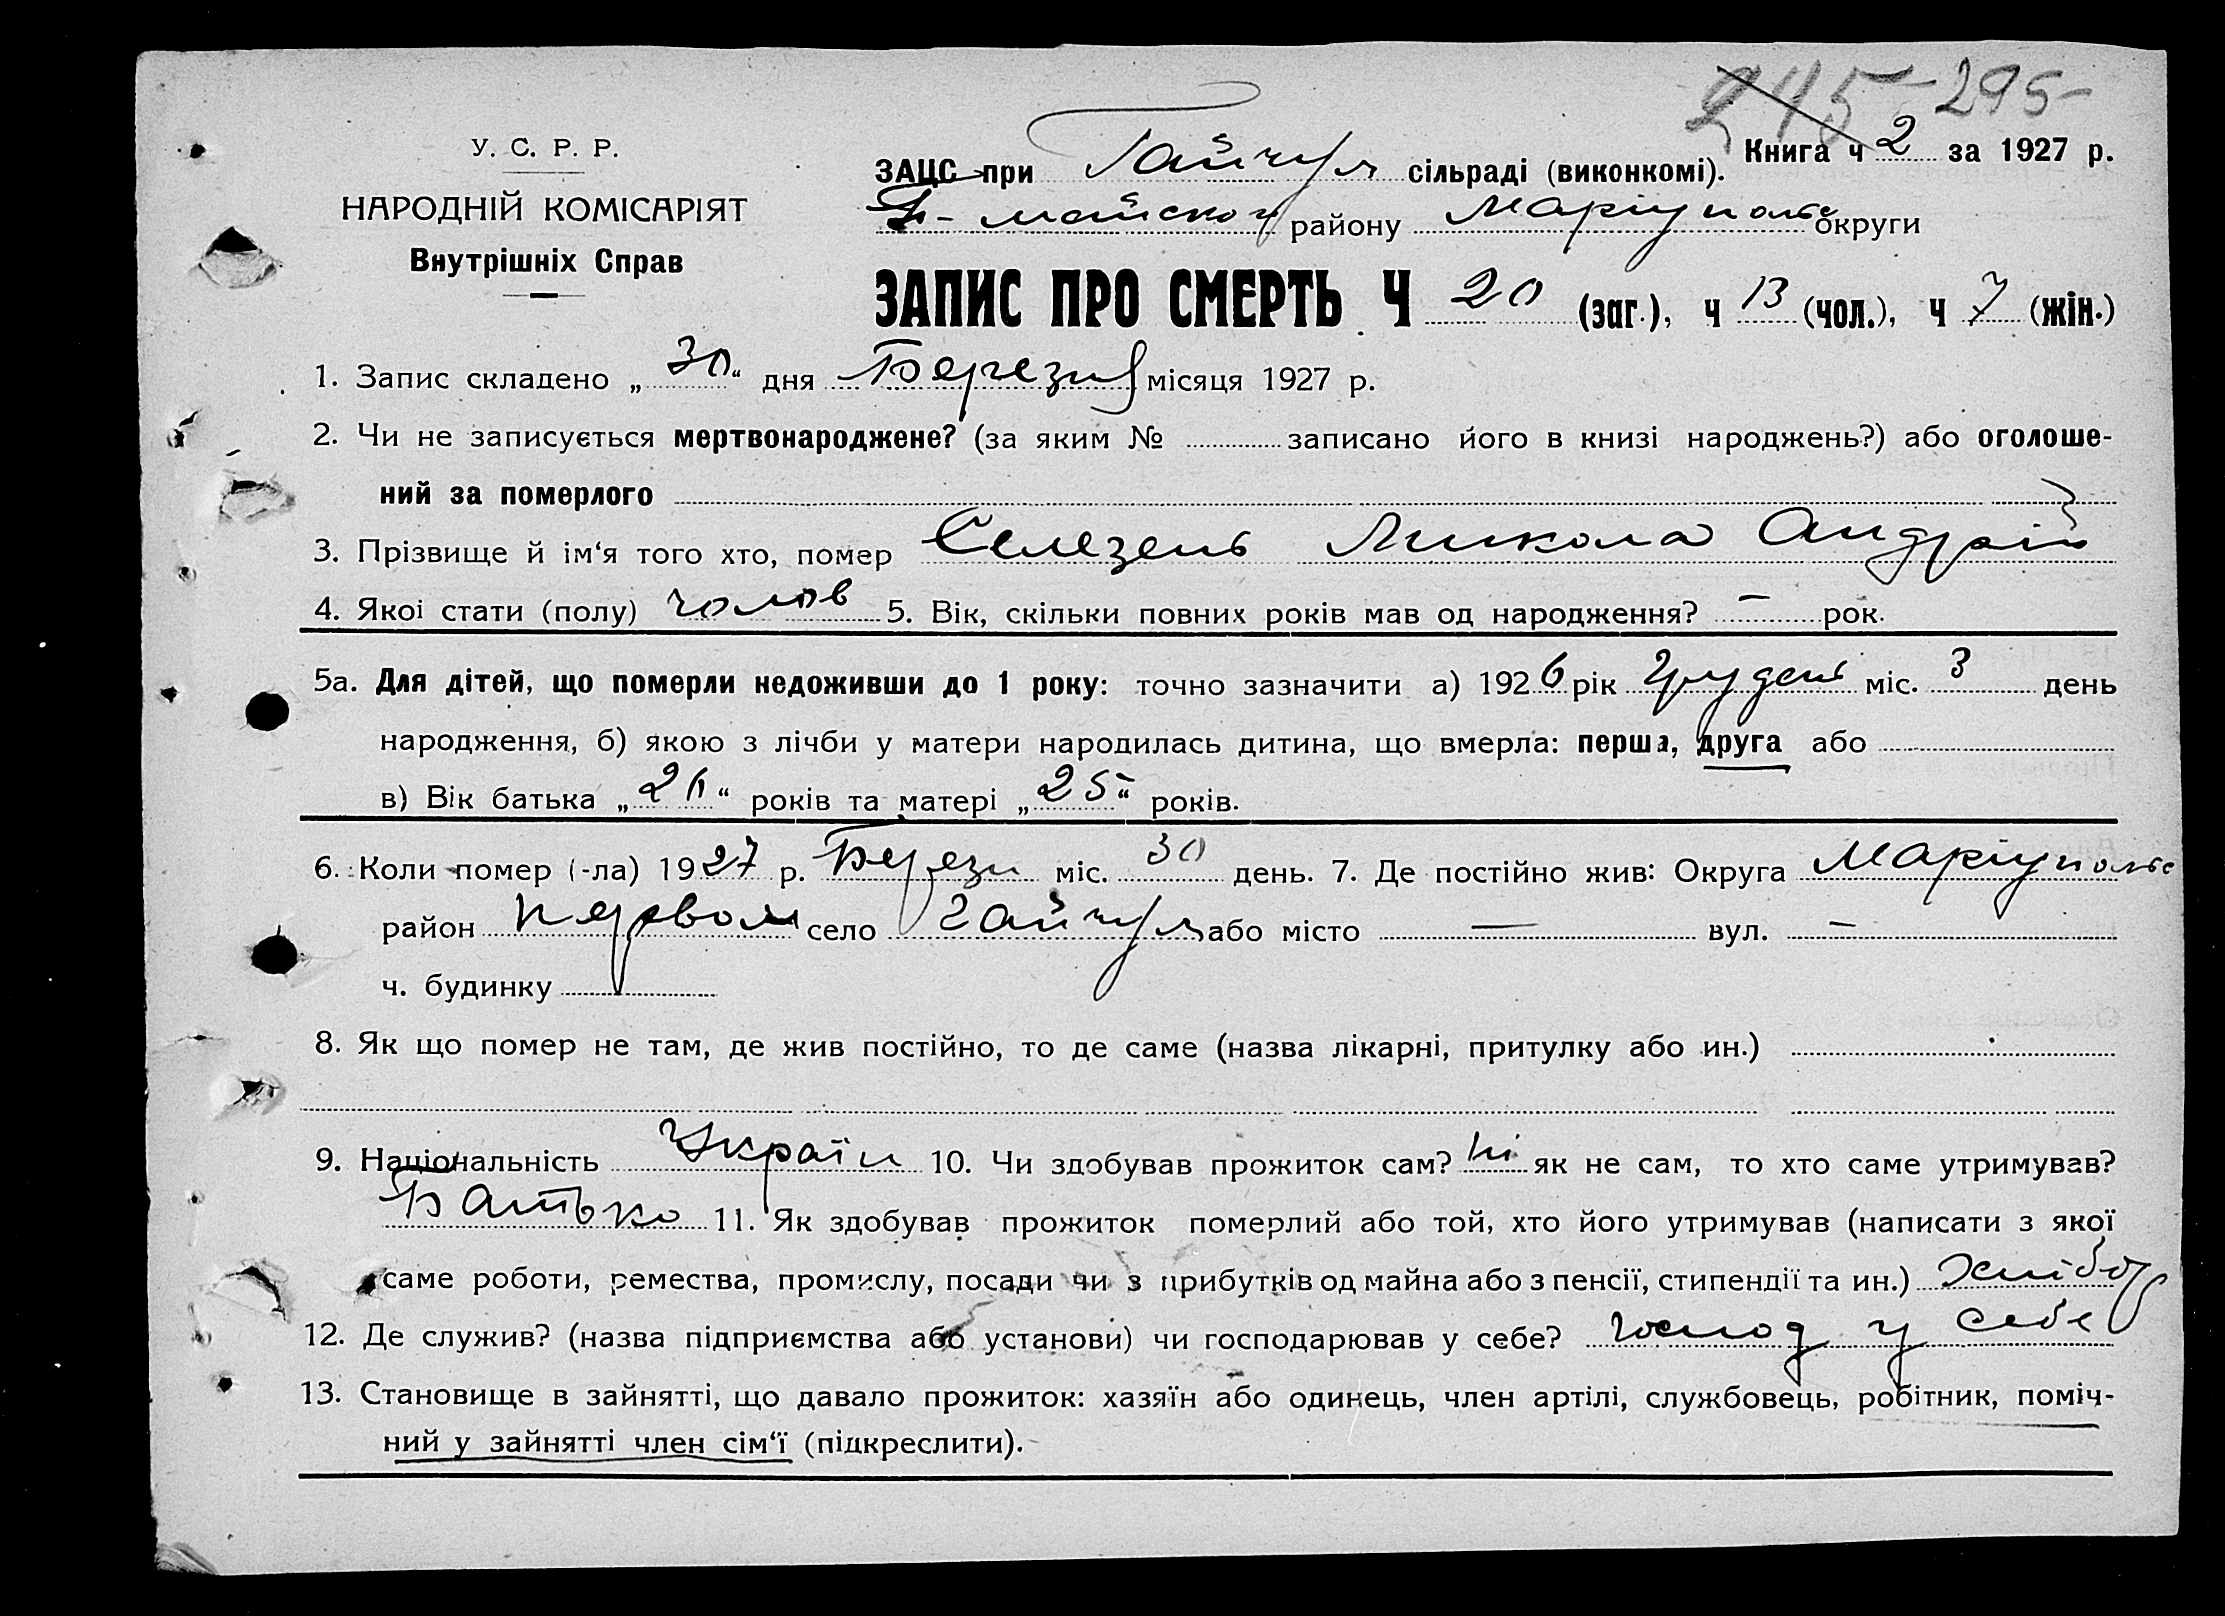 245 - 295 -
У. С. Р. Р.
НАРОДНІЙ КОМІСАРІЯТ
Внутрішніх Справ
Книга ч 2 за 1927 р.
ЗАЦС при Гайчул сільраді (виконкомі).
майсько району Маріупольс округи
ЗАПИС ПРО СМЕРТЬ Ч 20 (заг.), ч 13 (чол.), ч 7 (жін.)
1. Запис складено „30“ дня Березня місяця 1927 р.
2. Чи не записується мертвонароджене? (за яким № записано його в книзі народжень?) або оголоше-
ний за померлого
3. Прізвище й ім‘я того хто, помер Селезень Микола Андрій
4. Якої стати (полу) чолов 5. Вік, скільки повних років мав од народження? — рок.
5а. Для дітей, що померли недоживши до 1 року: точно зазначити а) 1926 рік Грудень міс. 3 день
народження, б) якою з лічби у матери народилась дитина, що вмерла: перша, друга або
в) Вік батька „26“ років та матері „25“ років.
6. Коли помер (-ла) 1927 р. Березн міс. 30 день. 7. Де постійно жив: Округа Маріупольс
район Первом село Гайчул або місто — вул. —
ч. будинку
8. Як що помер не там, де жив постійно, то де саме (назва лікарні, притулку або ин.)
9. Національність Україн 10. Чи здобував прожиток сам? ні як не сам, то хто саме утримував?
Батько 11. Як здобував прожиток померлий або той, хто його утримував (написати з якої
саме роботи, ремества, промислу, посади чи з прибутків од майна або з пенсії, стипендії та ин.) Хлібор
12. Де служив? (назва підприємства або установи) чи господарював у себе? господ у себе
13. Становище в зайнятті, що давало прожиток: хазяїн або одинець, член артілі, службовець, робітник, поміч-
ний у зайнятті член сім‘ї (підкреслити).